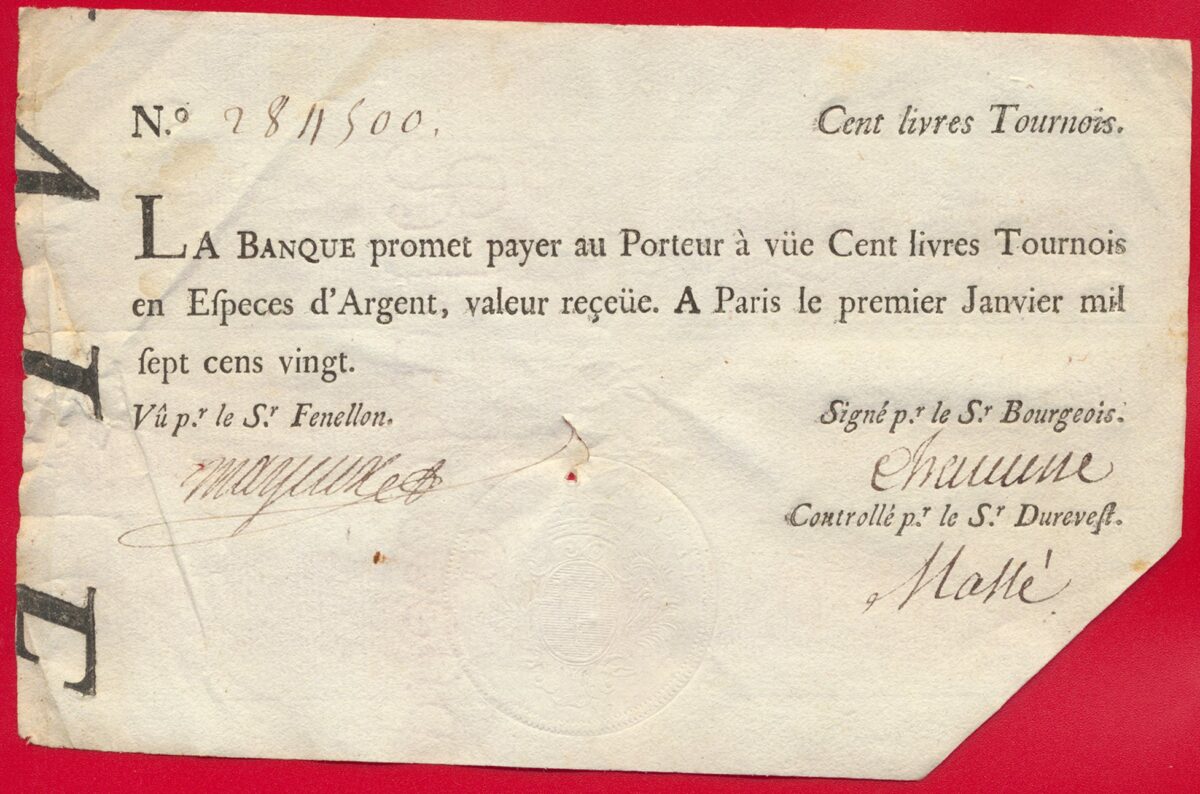 N.o 284500.
Cent livres Tournois.
LA BANQUE promet payer au Porteur à vüe Cent livres Tournois
en Eſpeces d'Argent, valeur reçeüe. A Paris le premier Janvier mil
ſept cens vingt.
Vû p.r le S.r Fenellon.
Signé p.r le S.r Bourgeois.
Controllé p.r le S.r Dureveſt.